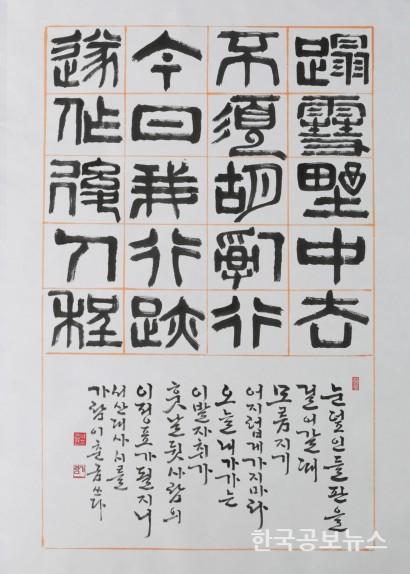 蹋雪野中去
不須胡亂行
今日我行跡
遂作後人程
눈덮인들판을
걸어갈때
모름지기
어지럽게가지마라
오늘내가가는
이발자취가
훗날뒷사람의
이정표가될지니
서산대사시를
가람이춘금쓰다
한국공보뉴스